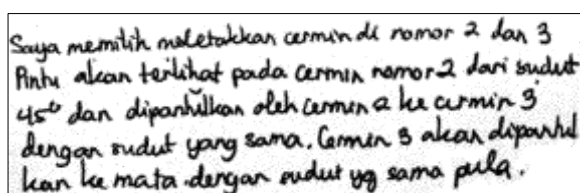 Saya memilih meletakkan cermin di nomor 2 dan 3
Pintu akan terlihat pada cermin nomor 2 dari sudut
45° dan dipantulkan oleh cermin 2 ke cermin 3
dengan sudut yang sama. Cermin 3 akan dipantul
kan ke mata dengan sudut yg sama pula.